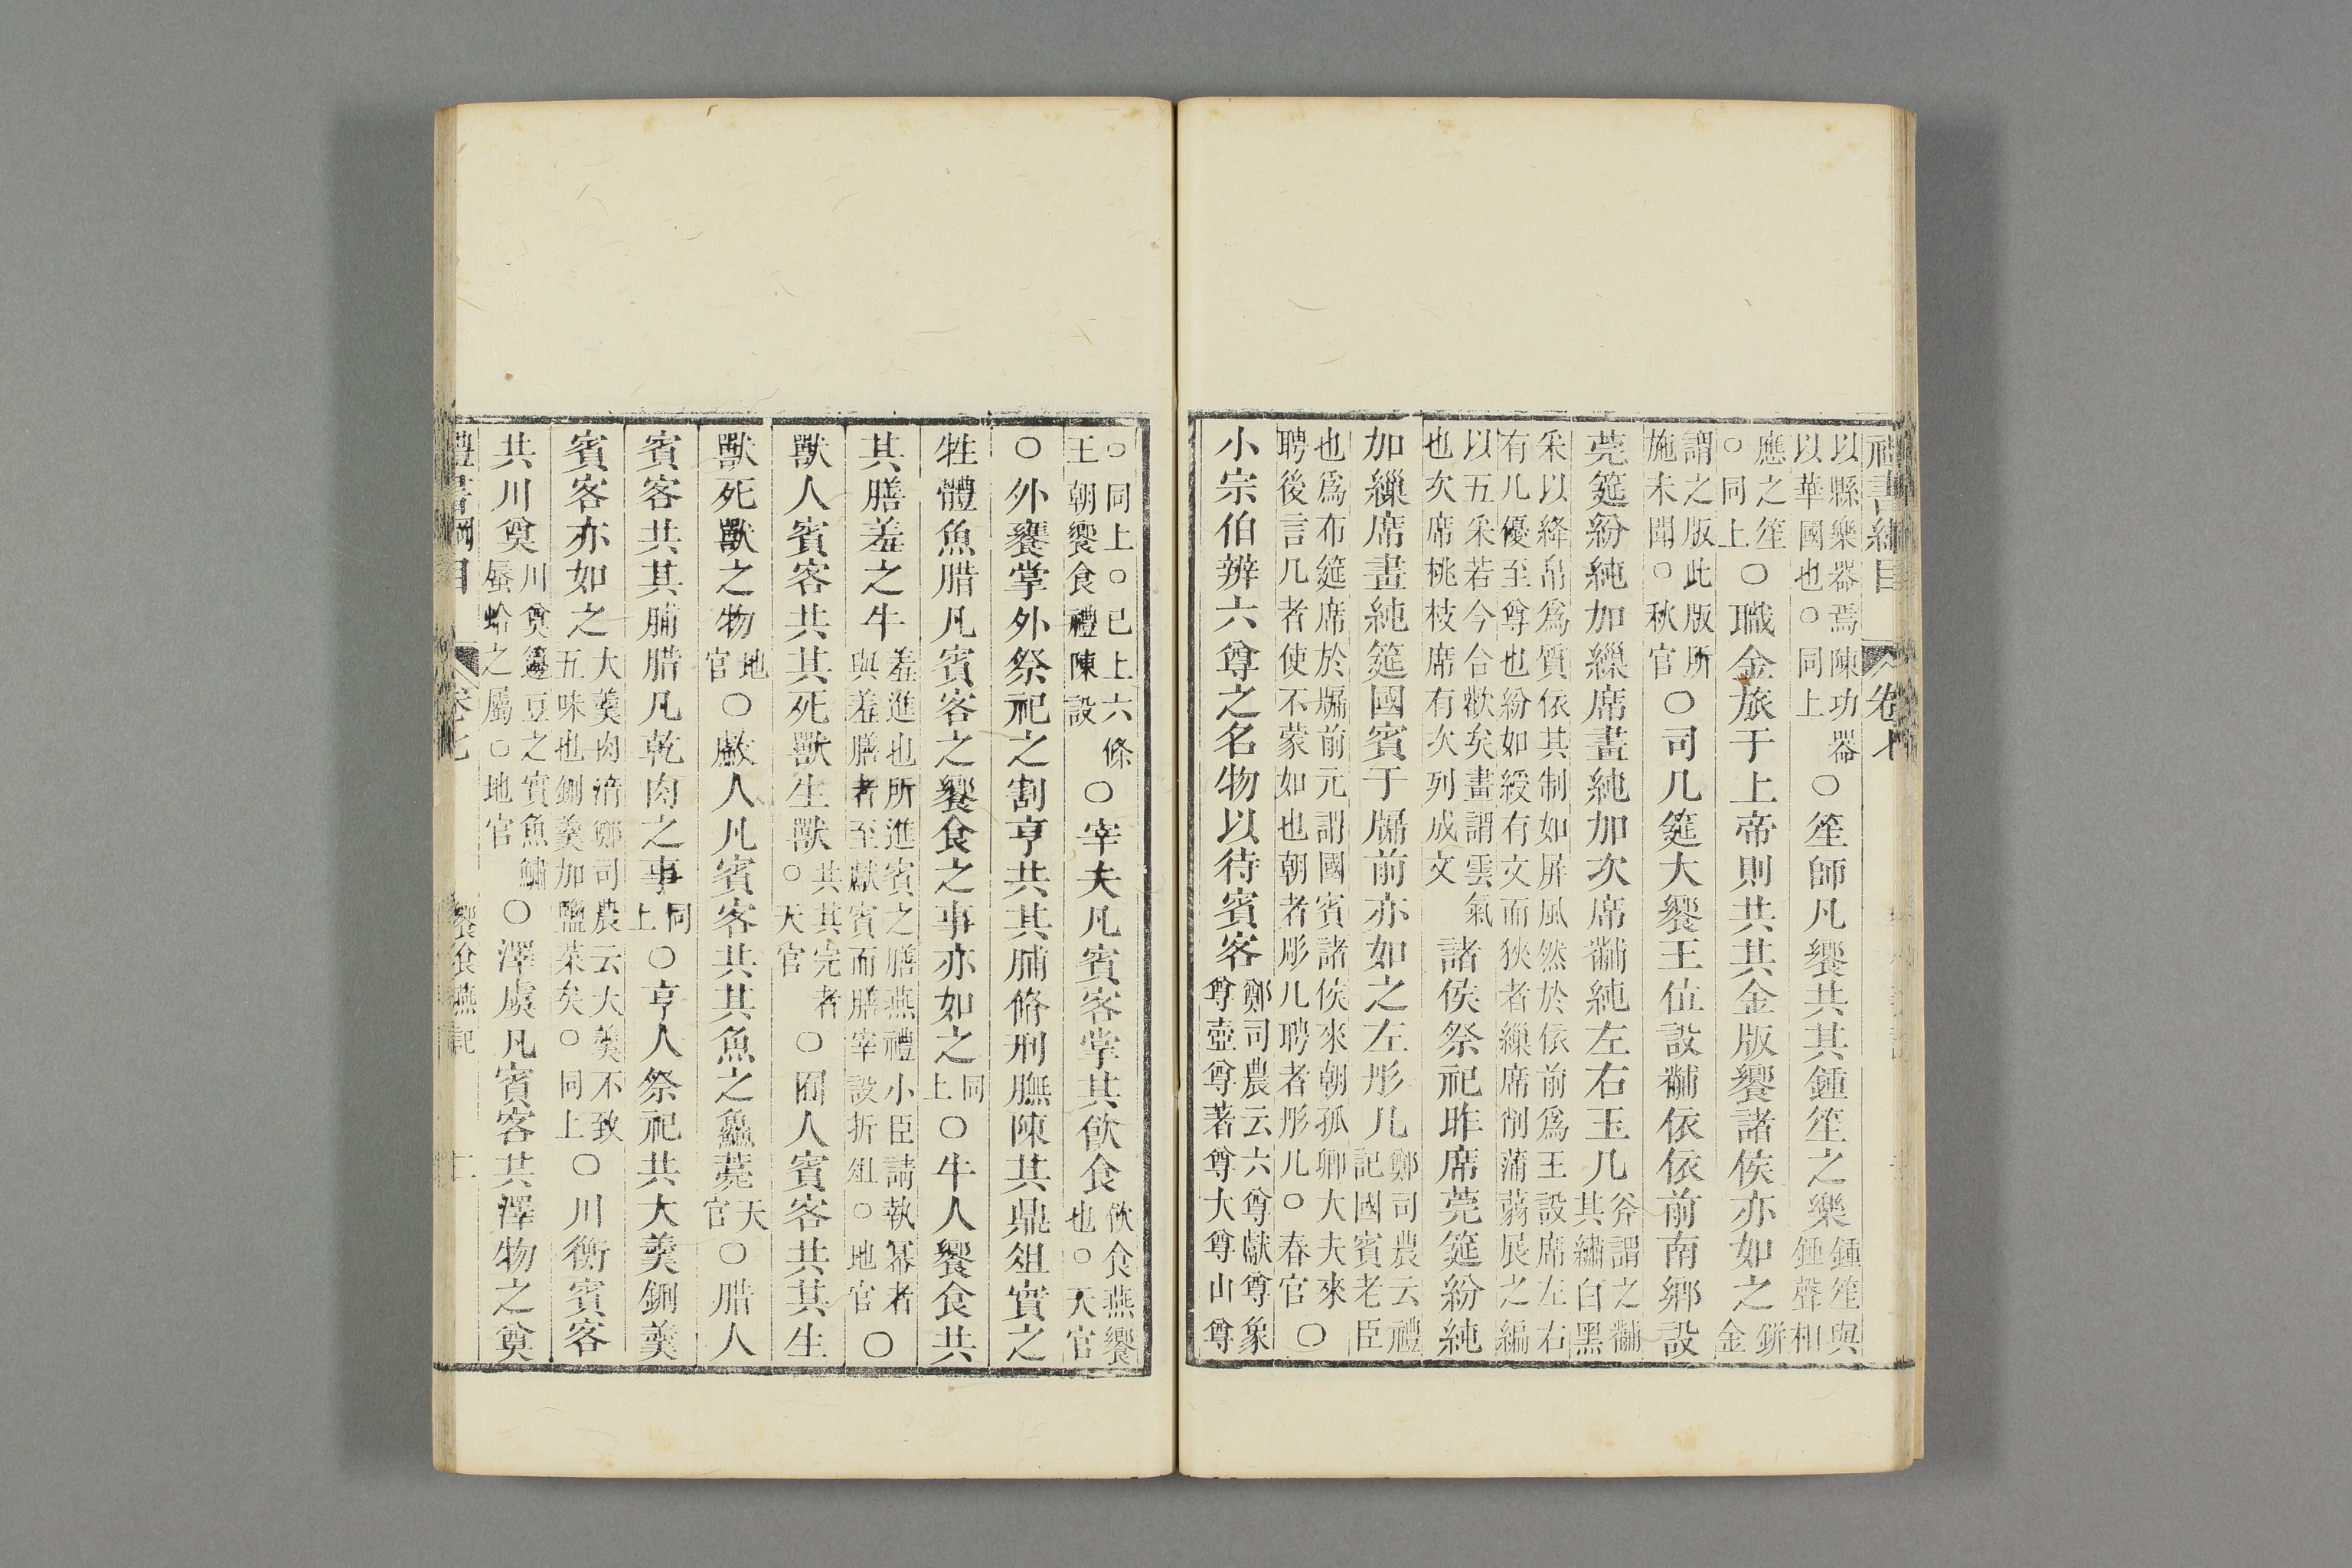 禮書綱目 卷七
以縣樂器焉陳功器以華國也○同上○笙師凡饗共其鍾笙之樂鍾笙與鍾聲相
應之笙○同上○職金旅于上帝則共其金版饗諸侯亦如之鉼金
謂之版此版所施未聞○秋官○司几筵大饗王位設黼依依前南鄉設
莞筵紛純加繅席畫純加次席黼純左右玉几斧謂之黼其繡白黑
采以絳帛爲質依其制如屏風然於依前爲王設席左右有几優至尊也紛如綬有文而狹者繅席削蒲蒻展之編
以五采若今合歡矣畫謂雲氣也次席桃枝席有次列成文諸侯祭祀昨席莞筵紛純
加繅席畫純筵國賓于牖前亦如之左彤几鄭司農云禮記國賓老臣
也爲布筵席於牖前元謂國賓諸侯來朝孤卿大夫來聘後言几者使不蒙如也朝者彫几聘者彤几○春官○
小宗伯辨六尊之名物以待賓客鄭司農云六尊獻尊象尊壺尊著尊大尊山尊
○同上○已上六條王朝饗食禮陳設○宰夫凡賓客掌其飲食飲食燕饗也○天官
○外饔掌外祭祀之割亨共其脯脩刑膴陳其鼎俎實之
牲體魚腊凡賓客之饗食之事亦如之同上○牛人饗食共
其膳羞之牛羞進也所進賓之膳燕禮小臣請執冪者與羞膳者至獻賓而膳宰設折俎○地官○
獸人賓客共其死獸生獸共其完者○天官○囿人賓客共其生
獸死獸之物地官○䱷人凡賓客共其魚之鱻薧天官○腊人
賓客共其脯腊凡乾肉之事同上○亨人祭祀共大羹鉶羹
賓客亦如之大羹肉湆鄭司農云大羹不致五味也鉶羹加鹽菜矣○同上○川衡賓客
共川奠川奠籩豆之實魚鱐蜃蛤之屬○地官○澤虞凡賓客共澤物之奠
禮書綱目 卷七 饗食燕記 二